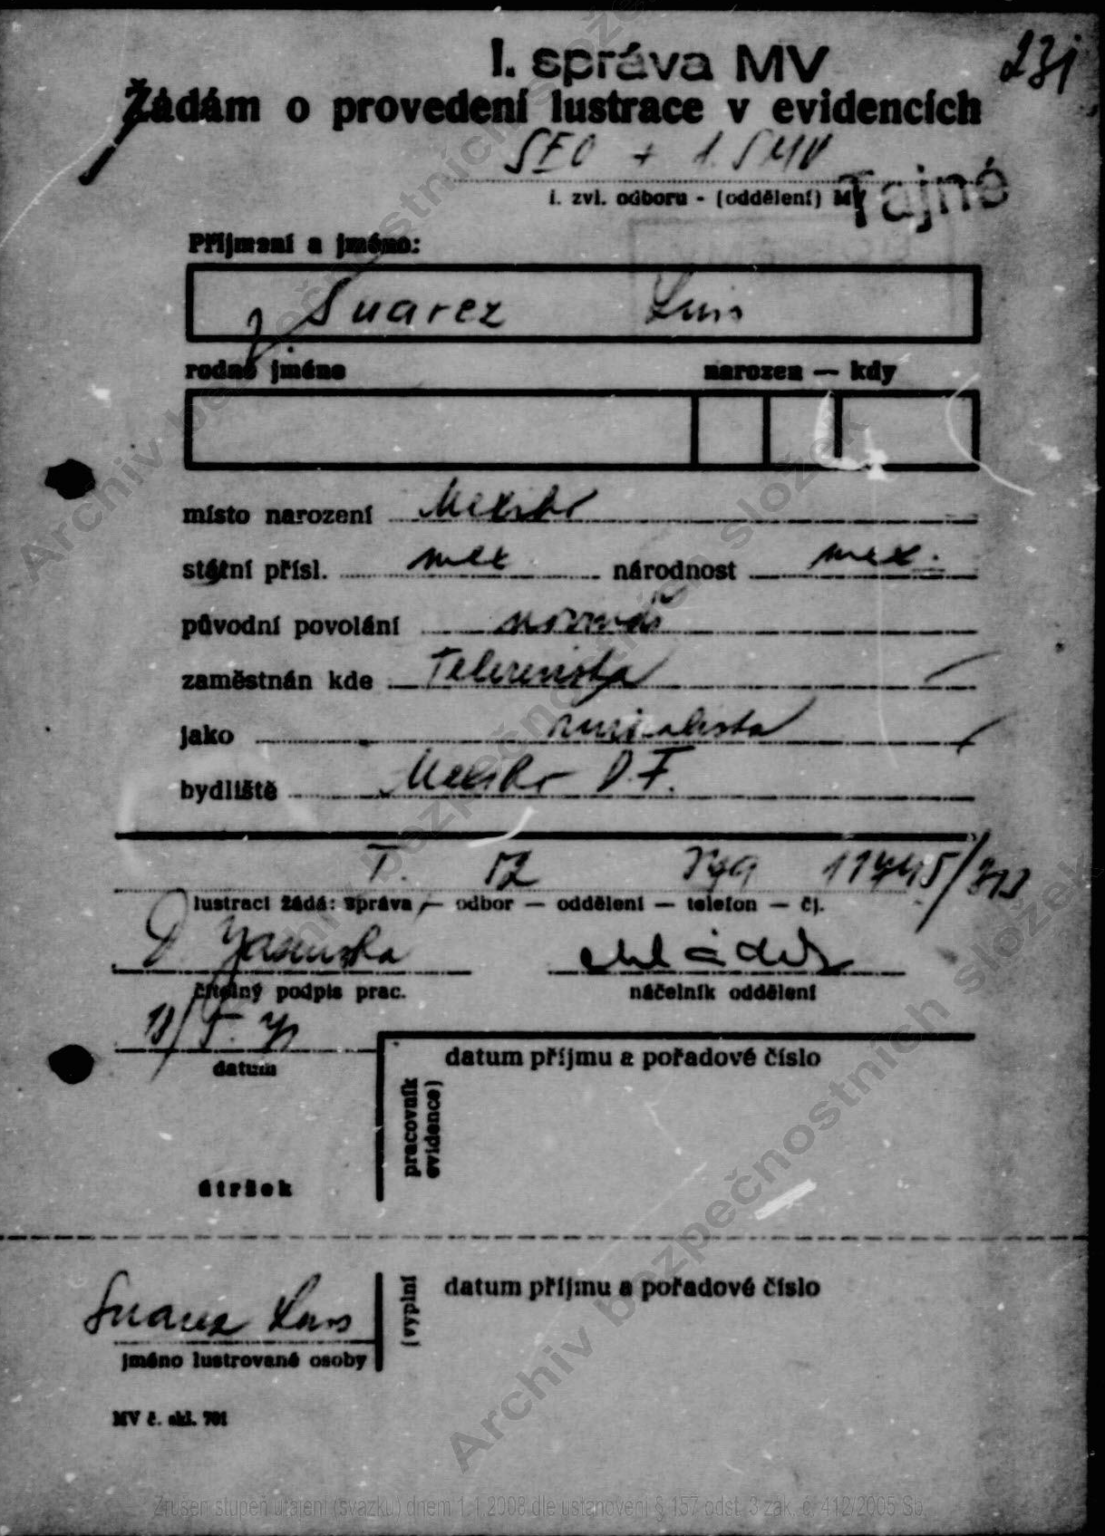 I. správa MV
231
Žádám o provedení lustrace v evidencích
SEO + 1. SMV
i. zvl. odboru - (oddělení) MV
Tajné
Příjmení a jméno:
Suarez Luis
rodné jméno narozen — kdy
místo narození Mexiko
státní přísl. mex národnost mex.
původní povolání novinář
zaměstnán kde
jako
bydliště Mexiko D.F.
I. 52
lustraci žádá: správa — odbor — oddělení — telefon — čj.
čitelný podpis prac. náčelník oddělení
datum
datum příjmu a pořadové číslo
pracovník evidence)
útržek
Suarez Luis
jméno lustrované osoby
(vyplní
datum příjmu a pořadové číslo
MV č. skl. 701
Archiv bezpečnostních složek
Zrušen stupeň utajení (svazku) dnem 1.1.2008 dle ustanovení § 157 odst. 3 zák. č. 412/2005 Sb.